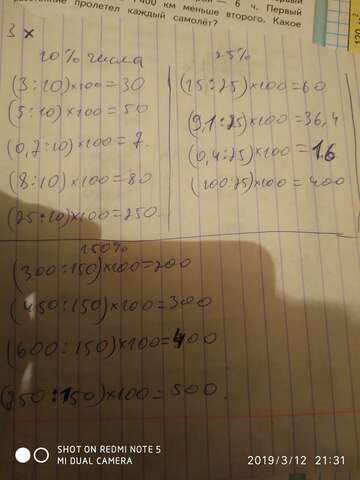 6 ч. Первый
400 км меньше второго. Какое
расстояние пролетел каждый самолёт?
3 ×
10% числа
(3:10)×100=30
(5:10)×100=50
(0,7:10)×100=7.
(8:10)×100=80
(25:10)×100=250.
25%
(15:25)×100=60
(9,1:25)×100=36,4
(0,4:25)×100=1,6
(100:25)×100=400
150%
(300:150)×100=200
(450:150)×100=300
(600:150)×100=400
(750:150)×100=500.
SHOT ON REDMI NOTE 5
MI DUAL CAMERA
2019/3/12 21:31